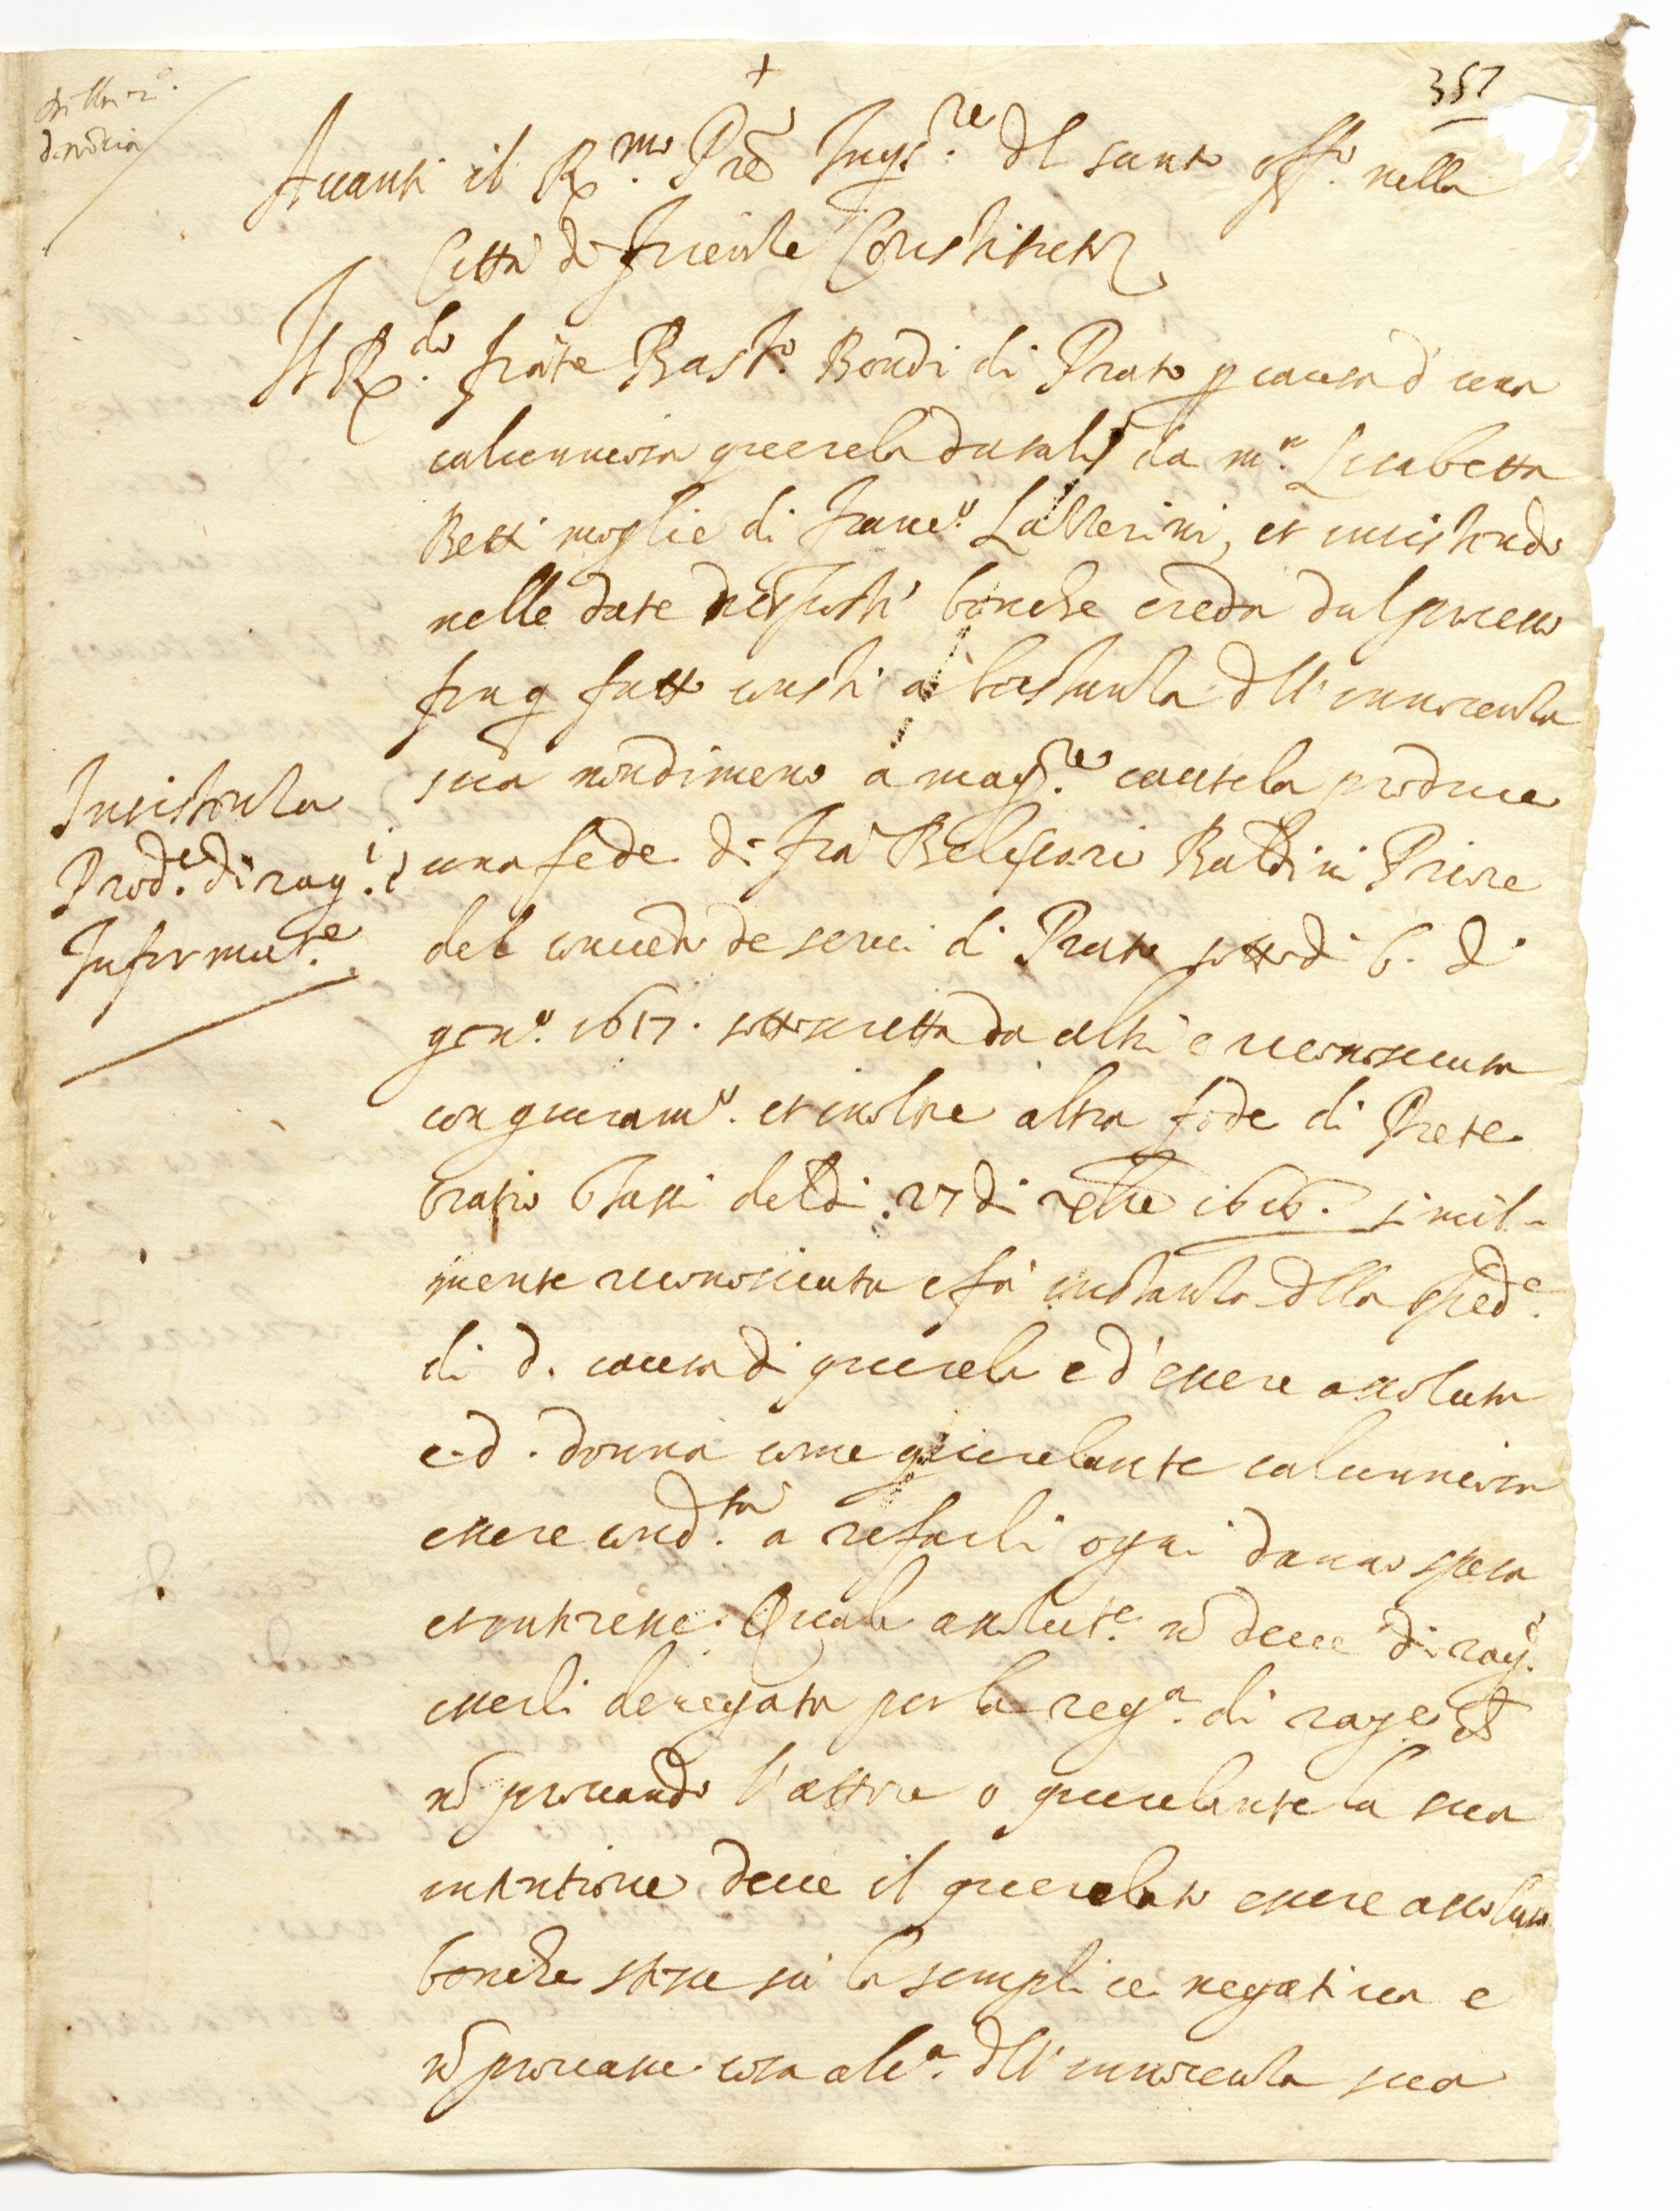 +
357
Avanti il R.mo Pre Inqs.re del santo off.o nella
Città di Firenze Constituto
Il R.do frate Bast.o Bondi di Prato p causa d'una
calunniosa querela datali da m.a Lisabetta
Betti moglie di Franc.o Lazzerini, et insistendo
nelle date risposte benche creda dal processo
sin q fatto consti a bastanza dell'innocenza
sua nondimeno a mag.re cautela produce
Insistenza
Prod.e di rag.i e
Informat.e
una fede di fra Belisario Baldini Priore
del convento de servi di Prato sotto di 6. di
gen.o 1617. sottoscritta da altri e reconosciuta
con giuram.o et inoltre altra fede di Prete
oratio del di 27 di 1616. simil-
mente reconosciuta e fa instanza della sped.e
di d. causa di querela e d'essere assoluto
e d. donna come querelante calunniosa
essere cond.ta a refarli ogni danno spesa
et interesse. Quale assolut.e nō deve di rag.e
esserli denegata per la reg.a di rag.e che
nō provando l'attore o querelante la sua
intentione deve il querelato essere assoluto
benche stesse su la semplice negativa e
nō provasse cosa alc.a dell'innocenza sua